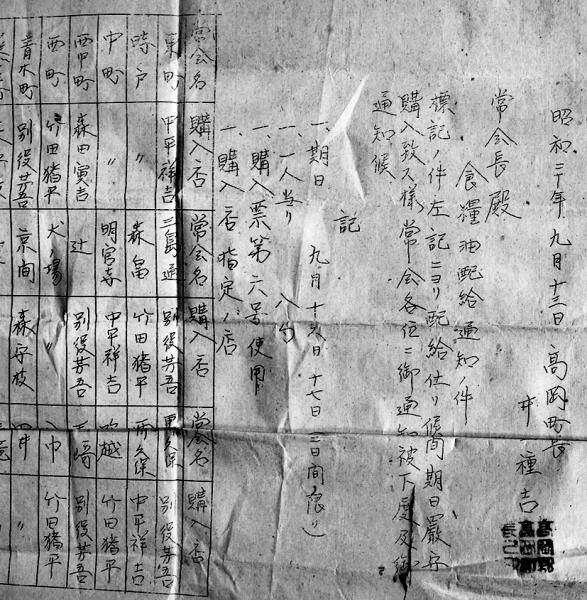 昭和二十年九月十三日
高岡町長
井 種吉
常会長殿
食糧油配給通知ノ件
標記ノ件左記ニヨリ配給仕リ候間期日厳守
購入致ス様常会各位ニ御通知被下度及御
通知候
記
一、期日 九月十六日 十七日(二日間限リ)
一、一人当リ 八勺
一、購入票第六号使用
一、購入店指定ノ店
常会名 購入店 常会名 購入店 常会名 購入店
東町 中平祥吉 三島通 別役芳吾 東久保 別役芳吾
時戸 〃 森畠 竹田猪平 西久保 中平祥吉
中町 〃 明官寺 中平祥吉 吹越 竹田猪平
西中町 森田寅吉 辻 別役芳吾 別役芳吾
西町 竹田猪平 犬ノ場 〃 竹田猪平
青木町 別役芳吾 京間 森 〃